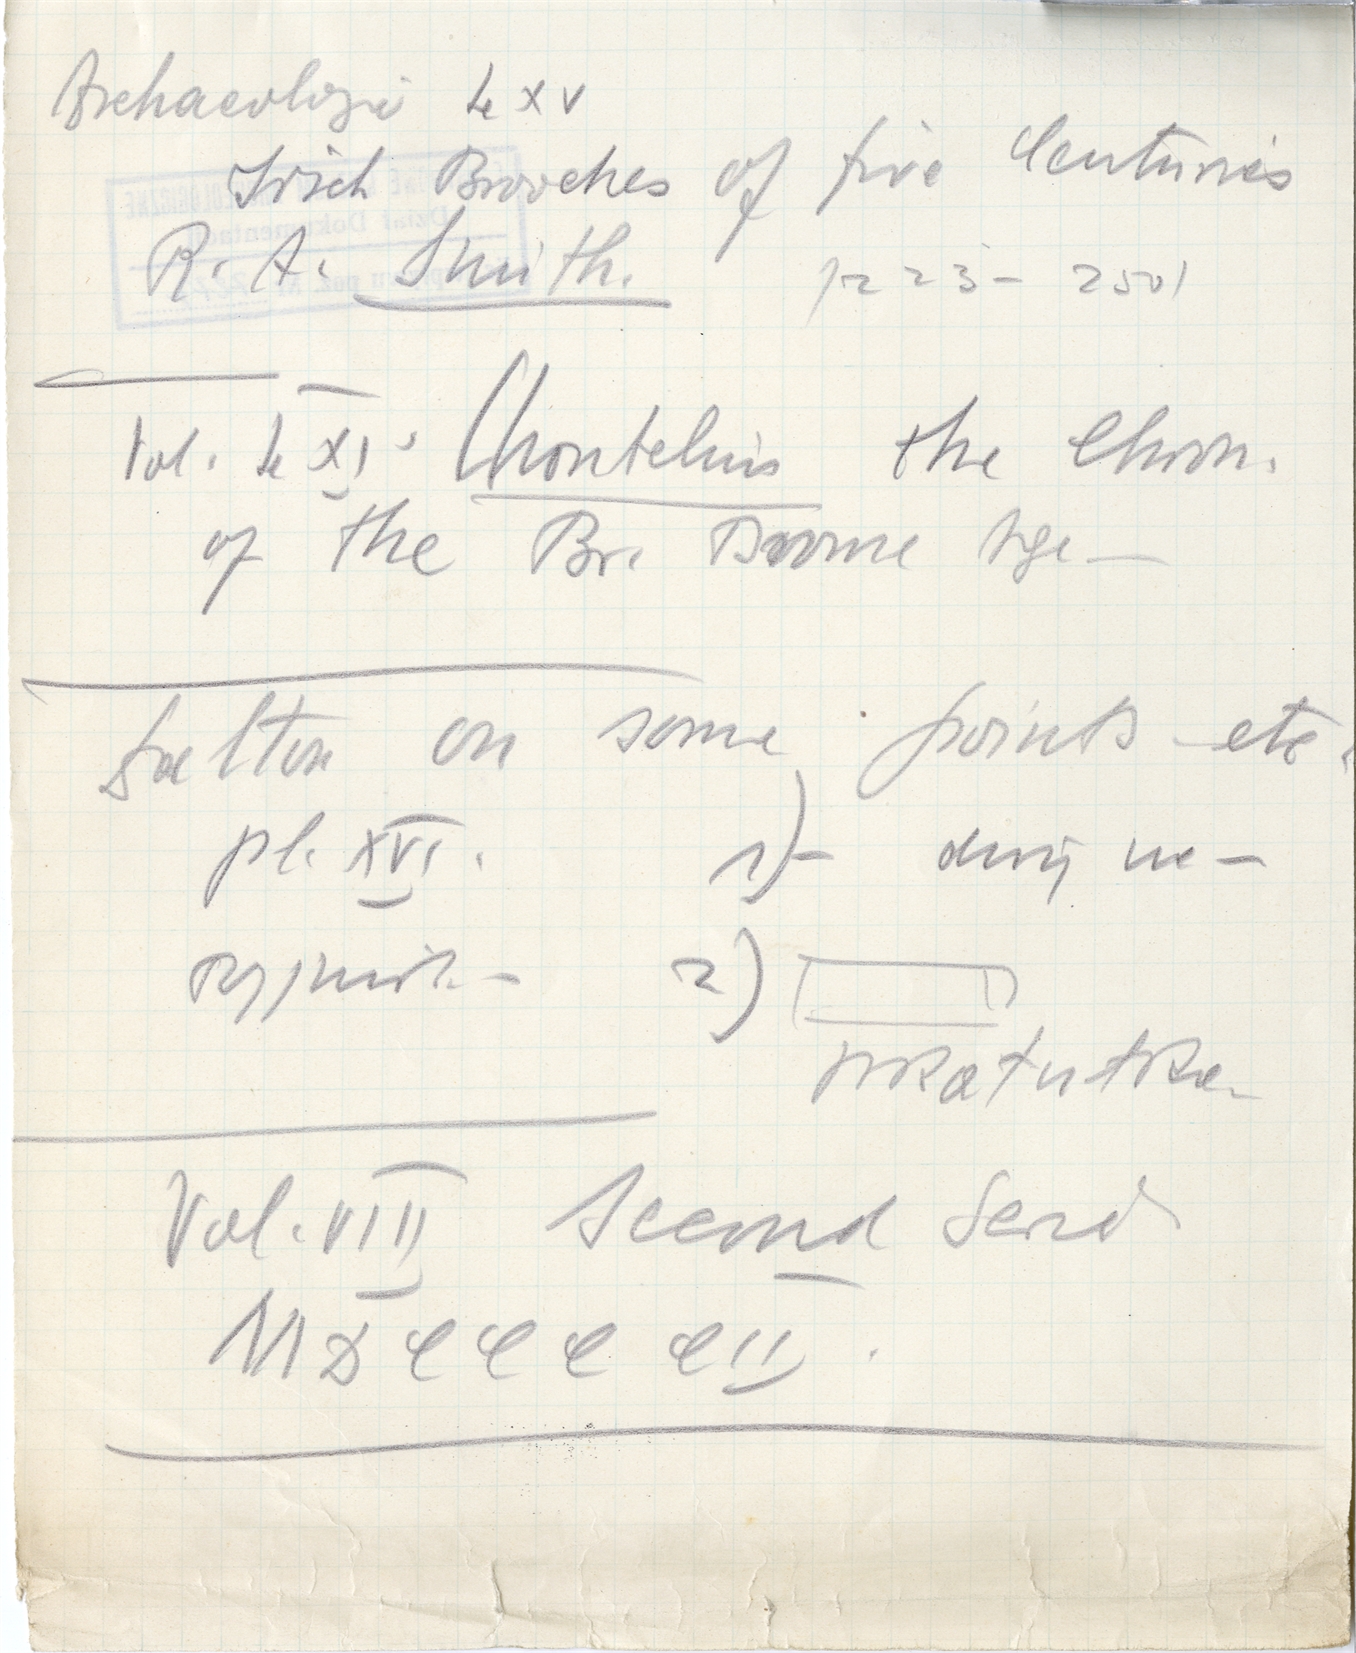 Archaeologi LXV
Irish Brooches of five Centuries
R. A. Smith. p 223 - 250
Vol. LXI. Montelius the Chron.
of the Br. Bronze Age —
Dalton on some points etc.
pl. XVI. 1) —
2)
Vol. VIII Second Serie
MDCCCCII.